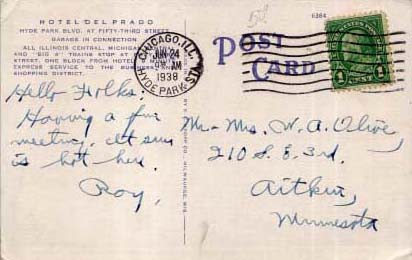 HOTEL DEL PRADO
HYDE PARK BLVD. AT FIFTY-THIRD STREET
GARAGE IN CONNECTION
ALL ILLINOIS CENTRAL, MICHIGAN
AND "BIG 4" TRAINS STOP AT
STREET, ONE BLOCK FROM HOTEL.
EXPRESS SERVICE TO THE BUSINESS AND
SHOPPING DISTRICT.
Hello Folks.
Having a fine
meeting. It sure
is hot here.
Roy.
CHICAGO, ILL.
JUN 24
AM
1938
HYDE PARK STA.
5¢
6384
POST
CARD
1 1
Mr. - Mrs. W. A. Olive,
210 S. E. 3rd.
Aitkin,
Minnesota